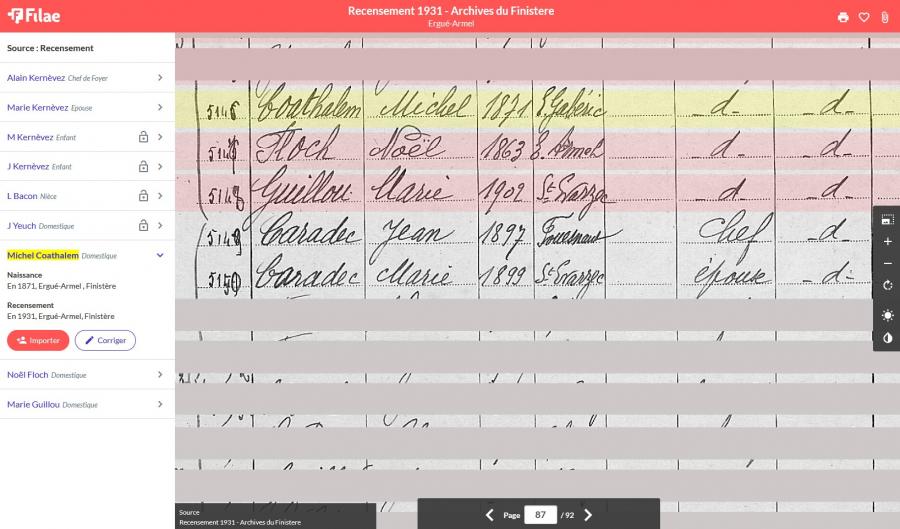 Filae
Recensement 1931 - Archives du Finistere
Ergué-Armel
Source : Recensement
Alain Kernèvez Chef de Foyer
Marie Kernèvez Epouse
M Kernèvez Enfant
J Kernèvez Enfant
L Bacon Nièce
J Yeuch Domestique
Michel Coathalem Domestique
Naissance
En 1871, Ergué-Armel , Finistère
Recensement
En 1931, Ergué-Armel, Finistère
Importer Corriger
Noël Floch Domestique
Marie Guillou Domestique
Coathalem Michel 1871 E.Gabéric _d_ _d_
Floch Noël 1863 E. Armel _d_ _d_
Guillou Marie 1902 St-Evarzec _d_ _d_
Caradec Jean 1897 Fouesnant Chef _d_
5150 Caradec Marie 1899 St-Evarzec épouse _d_
Source
Recensement 1931 - Archives du Finistere
Page 87 / 92